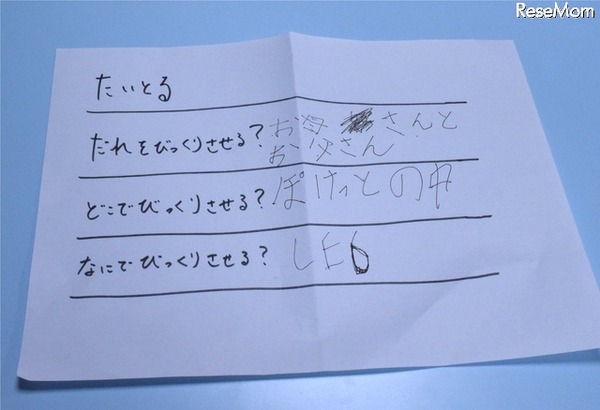 ReseMom
たいとる
だれをびっくりさせる? お母さんと
お父さん
どこでびっくりさせる? ぽけっとの中
なにでびっくりさせる? LED